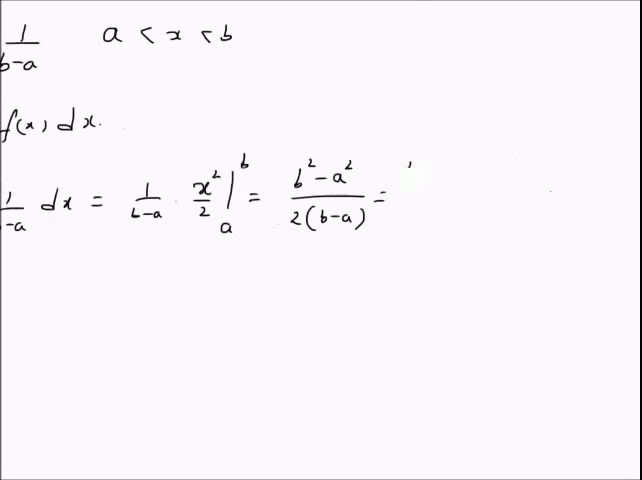 1/(b-a)   a < x < b
f(x) dx.
1/(-a) dx = 1/(b-a) · x²/2 |_a^b = (b² - a²)/(2(b-a)) =